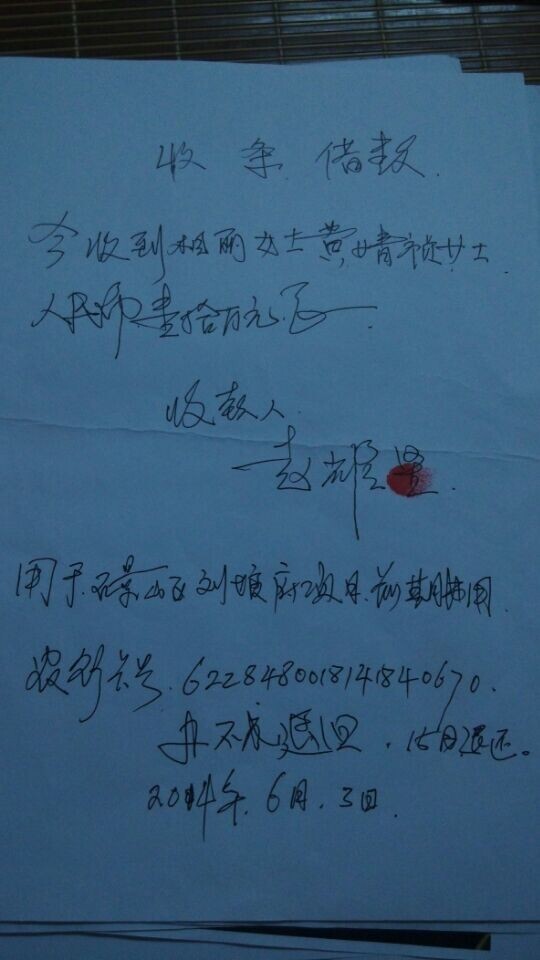 收条 借款
今收到杨丽女士黄婧女士
人民币壹拾万元
收款人
赵耀
用于石景山区刘娘府项目前期费用
农行卡号.6228480018141840670.
办不成退回.15日退还。
2014年.6月.3日.